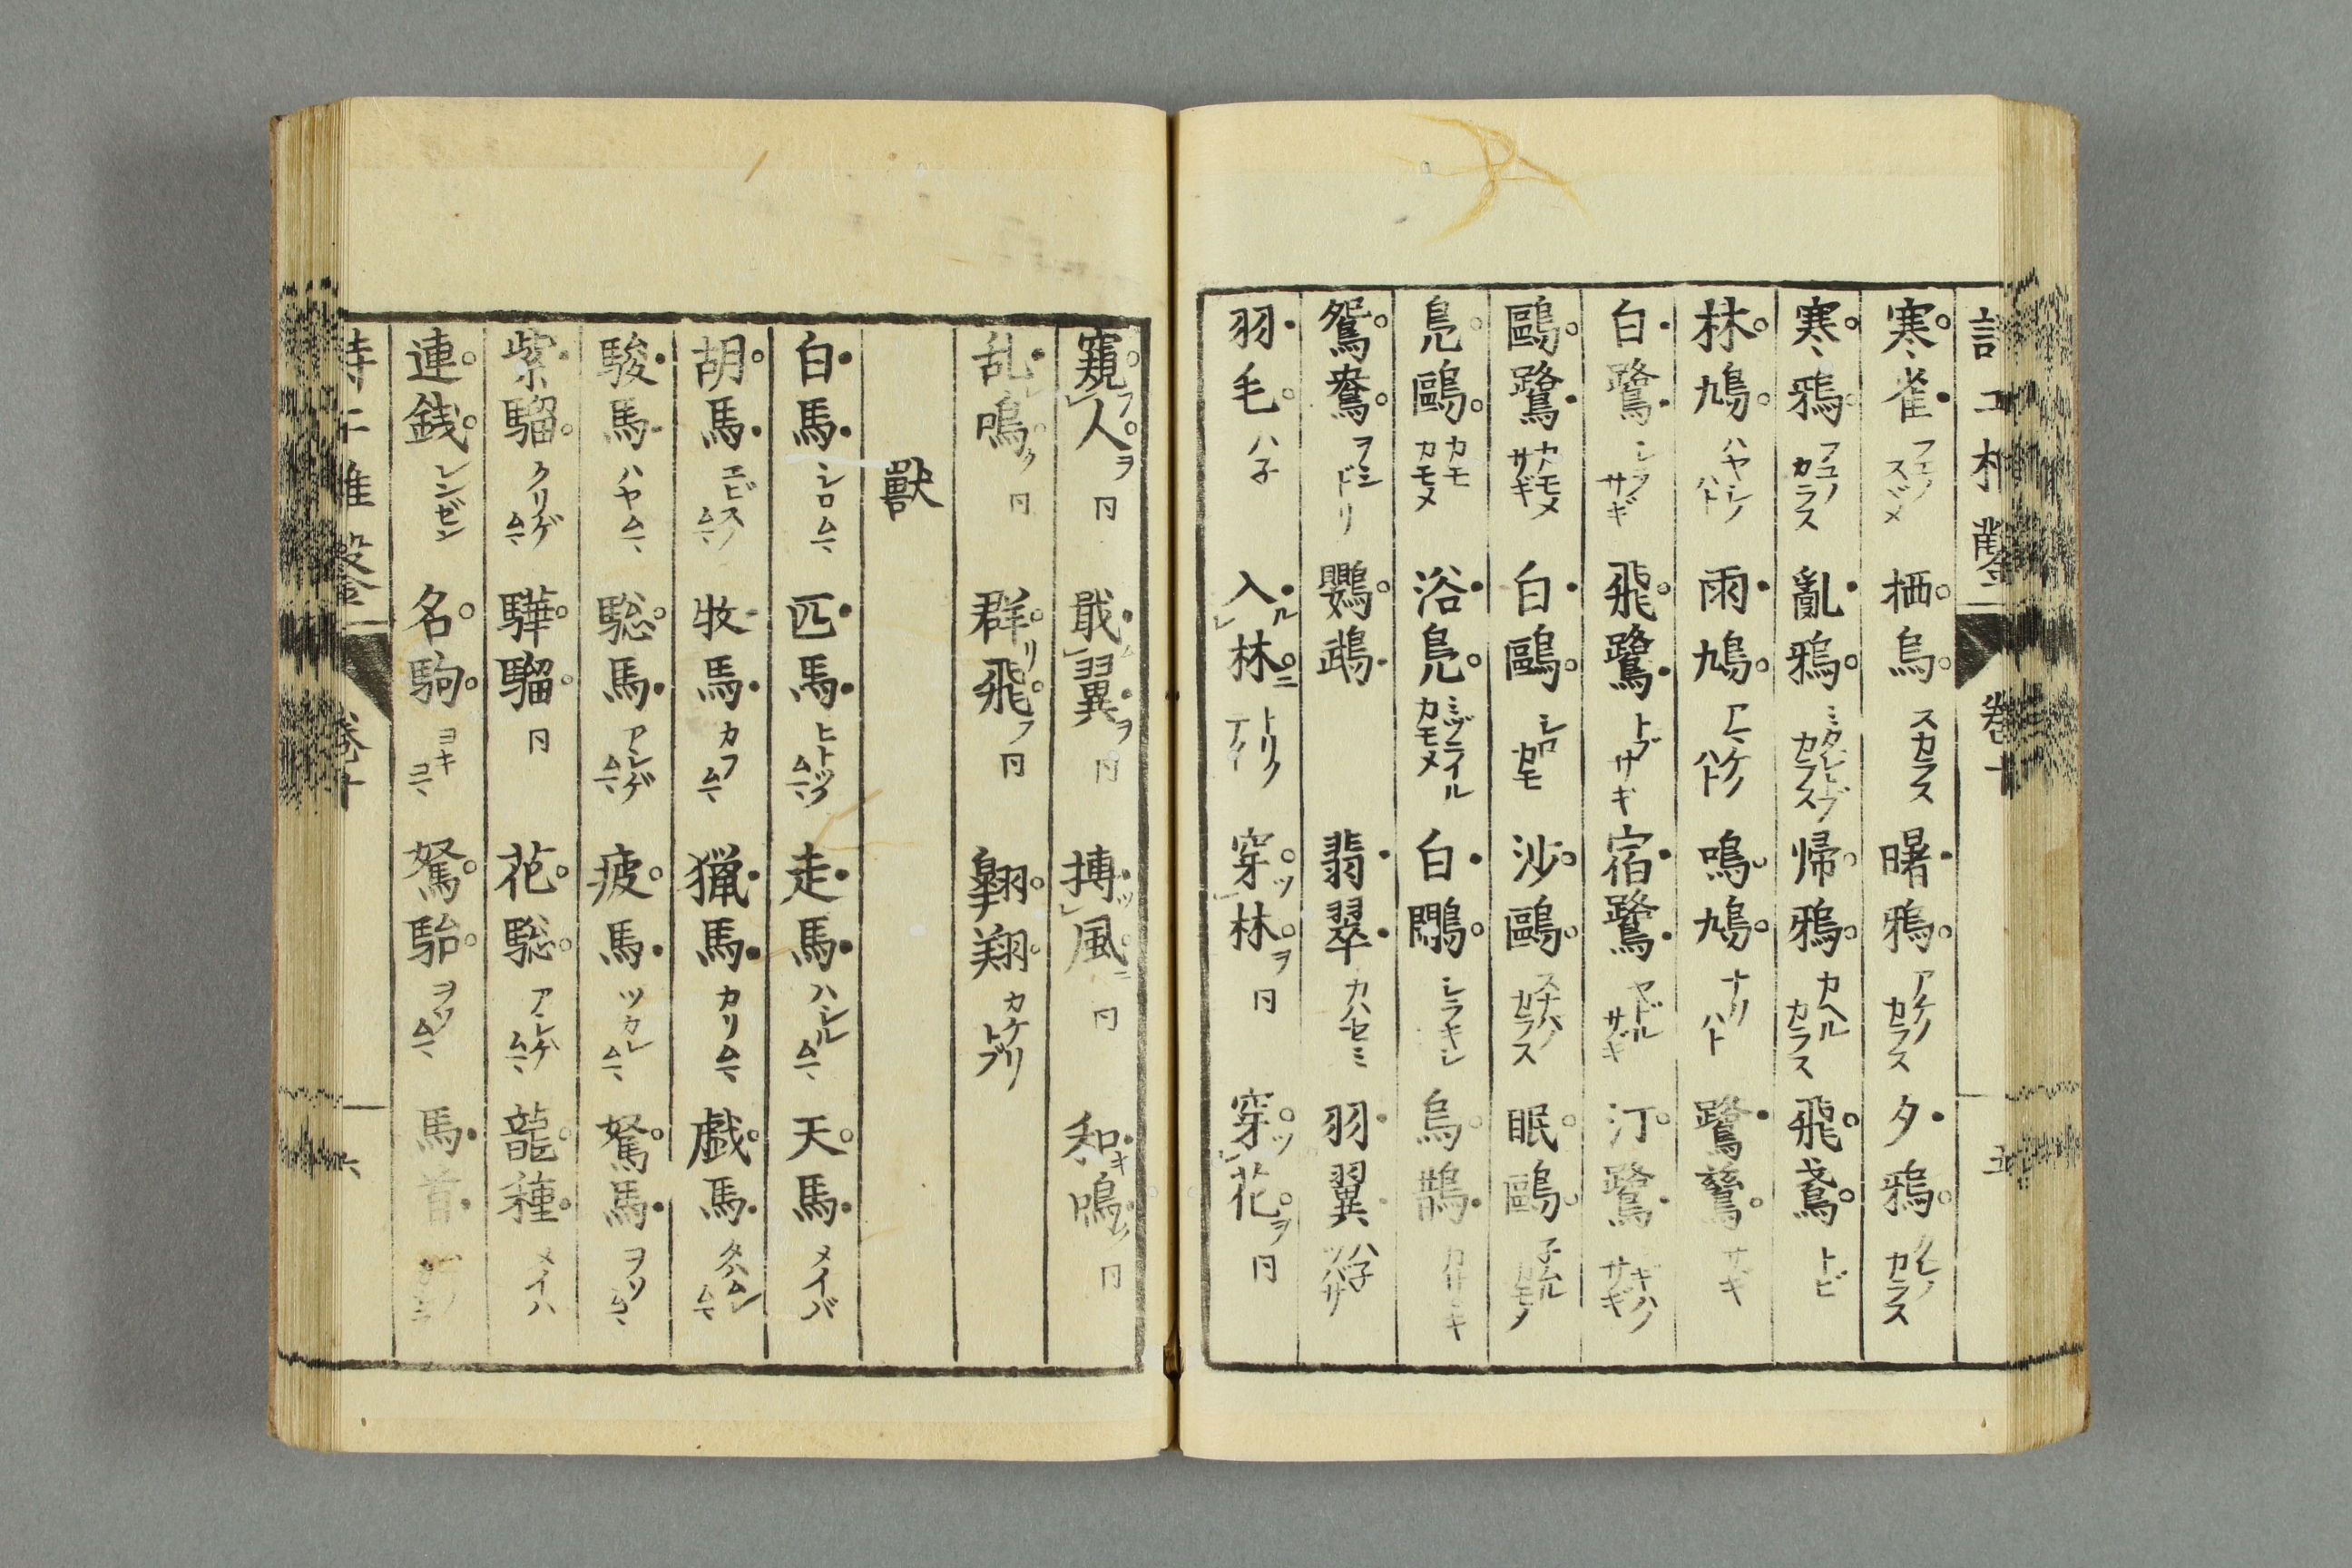 寒雀 フユノスヾメ 栖烏 スカラス 曙鴉 アケノカラス 夕鴉 クレノカラス
寒鴉 フユノカラス 亂鴉 ミダレトブカラス 帰鴉 カヘルカラス 飛鳶 トビ
林鳩 ハヤシノハト 雨鳩 アマケノハト 鳴鳩 ナクハト 鷺鷥 サギ
白鷺 シラサギ 飛鷺 トブサギ 宿鷺 ヤドルサギ 汀鷺 ミギハノサギ
鷗鷺 カモメサギ 白鷗 シロカモメ 沙鷗 眠鷗 子ムルカモメ
鳧鷗 カモカモメ 浴鳧 白鷴 烏鵲 カササギ
鴛鴦 ヲシドリ 鸚鵡 翡翠 カハセミ 羽翼 ハ子ツバサ
羽毛 ハ子 入ル林ニ 穿ツ林ヲ 同 穿ツ花ヲ 同
窺フ人ヲ 同 戢ム翼ヲ 同 搏ツ風ニ 同 和キ鳴ク 同
乱レ鳴ク 同 群リ飛フ 同 翺翔 カケリトブ
獸
白馬 シロムマ 匹馬 ヒトツノムマ 走馬 ハシルムマ 天馬 メイバ
胡馬 エビスノムマ 牧馬 カフムマ 猟馬 カリムマ 戯馬 タハムレムマ
駿馬 ハヤムマ 騘馬 アシゲムマ 疲馬 ツカレムマ 駑馬 ヲソムマ
紫騮 クリゲムマ 驊騮 同 花騘 アシゲムマ 龍種 メイハ
連銭 レンゼン 名駒 ヨキコマ 駑駘 ヲソムマ 馬首
卷十
六